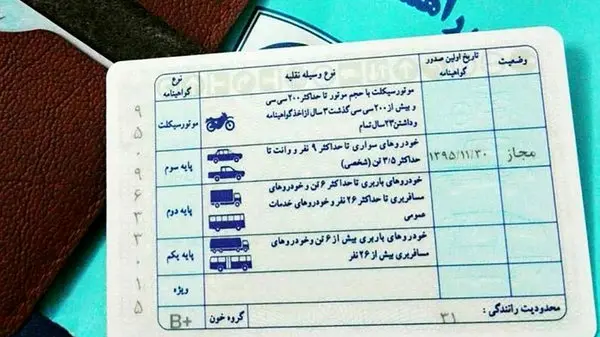 نوع گواهینامه
نوع وسیله نقلیه
تاریخ اولین صدور گواهینامه
وضعیت
موتورسیکلت
موتورسیکلت با حجم موتور تا حداکثر ۲۰۰ سی سی
و بیش از ۲۰۰ سی سی گذشت ۳ سال از اخذ گواهینامه
و داشتن ۲۳ سال تمام
پایه سوم
خودروهای سواری تا حداکثر ۹ نفر و وانت تا
حداکثر ۳/۵ تن (شخصی)
۱۳۹۵/۱۱/۳۰
مجاز
پایه دوم
خودروهای باربری تا حداکثر ۶ تن و خودروهای
مسافربری تا حداکثر ۲۶ نفر و خودروهای خدمات
عمومی
پایه یکم
خودروهای باربری بیش از ۶ تن و خودروهای
مسافربری بیش از ۲۶ نفر
ویژه
محدودیت رانندگی : ۳۱
گروه خون B+
۹
۵
۰
۹
۶
۳
۳
۰
۱
۵